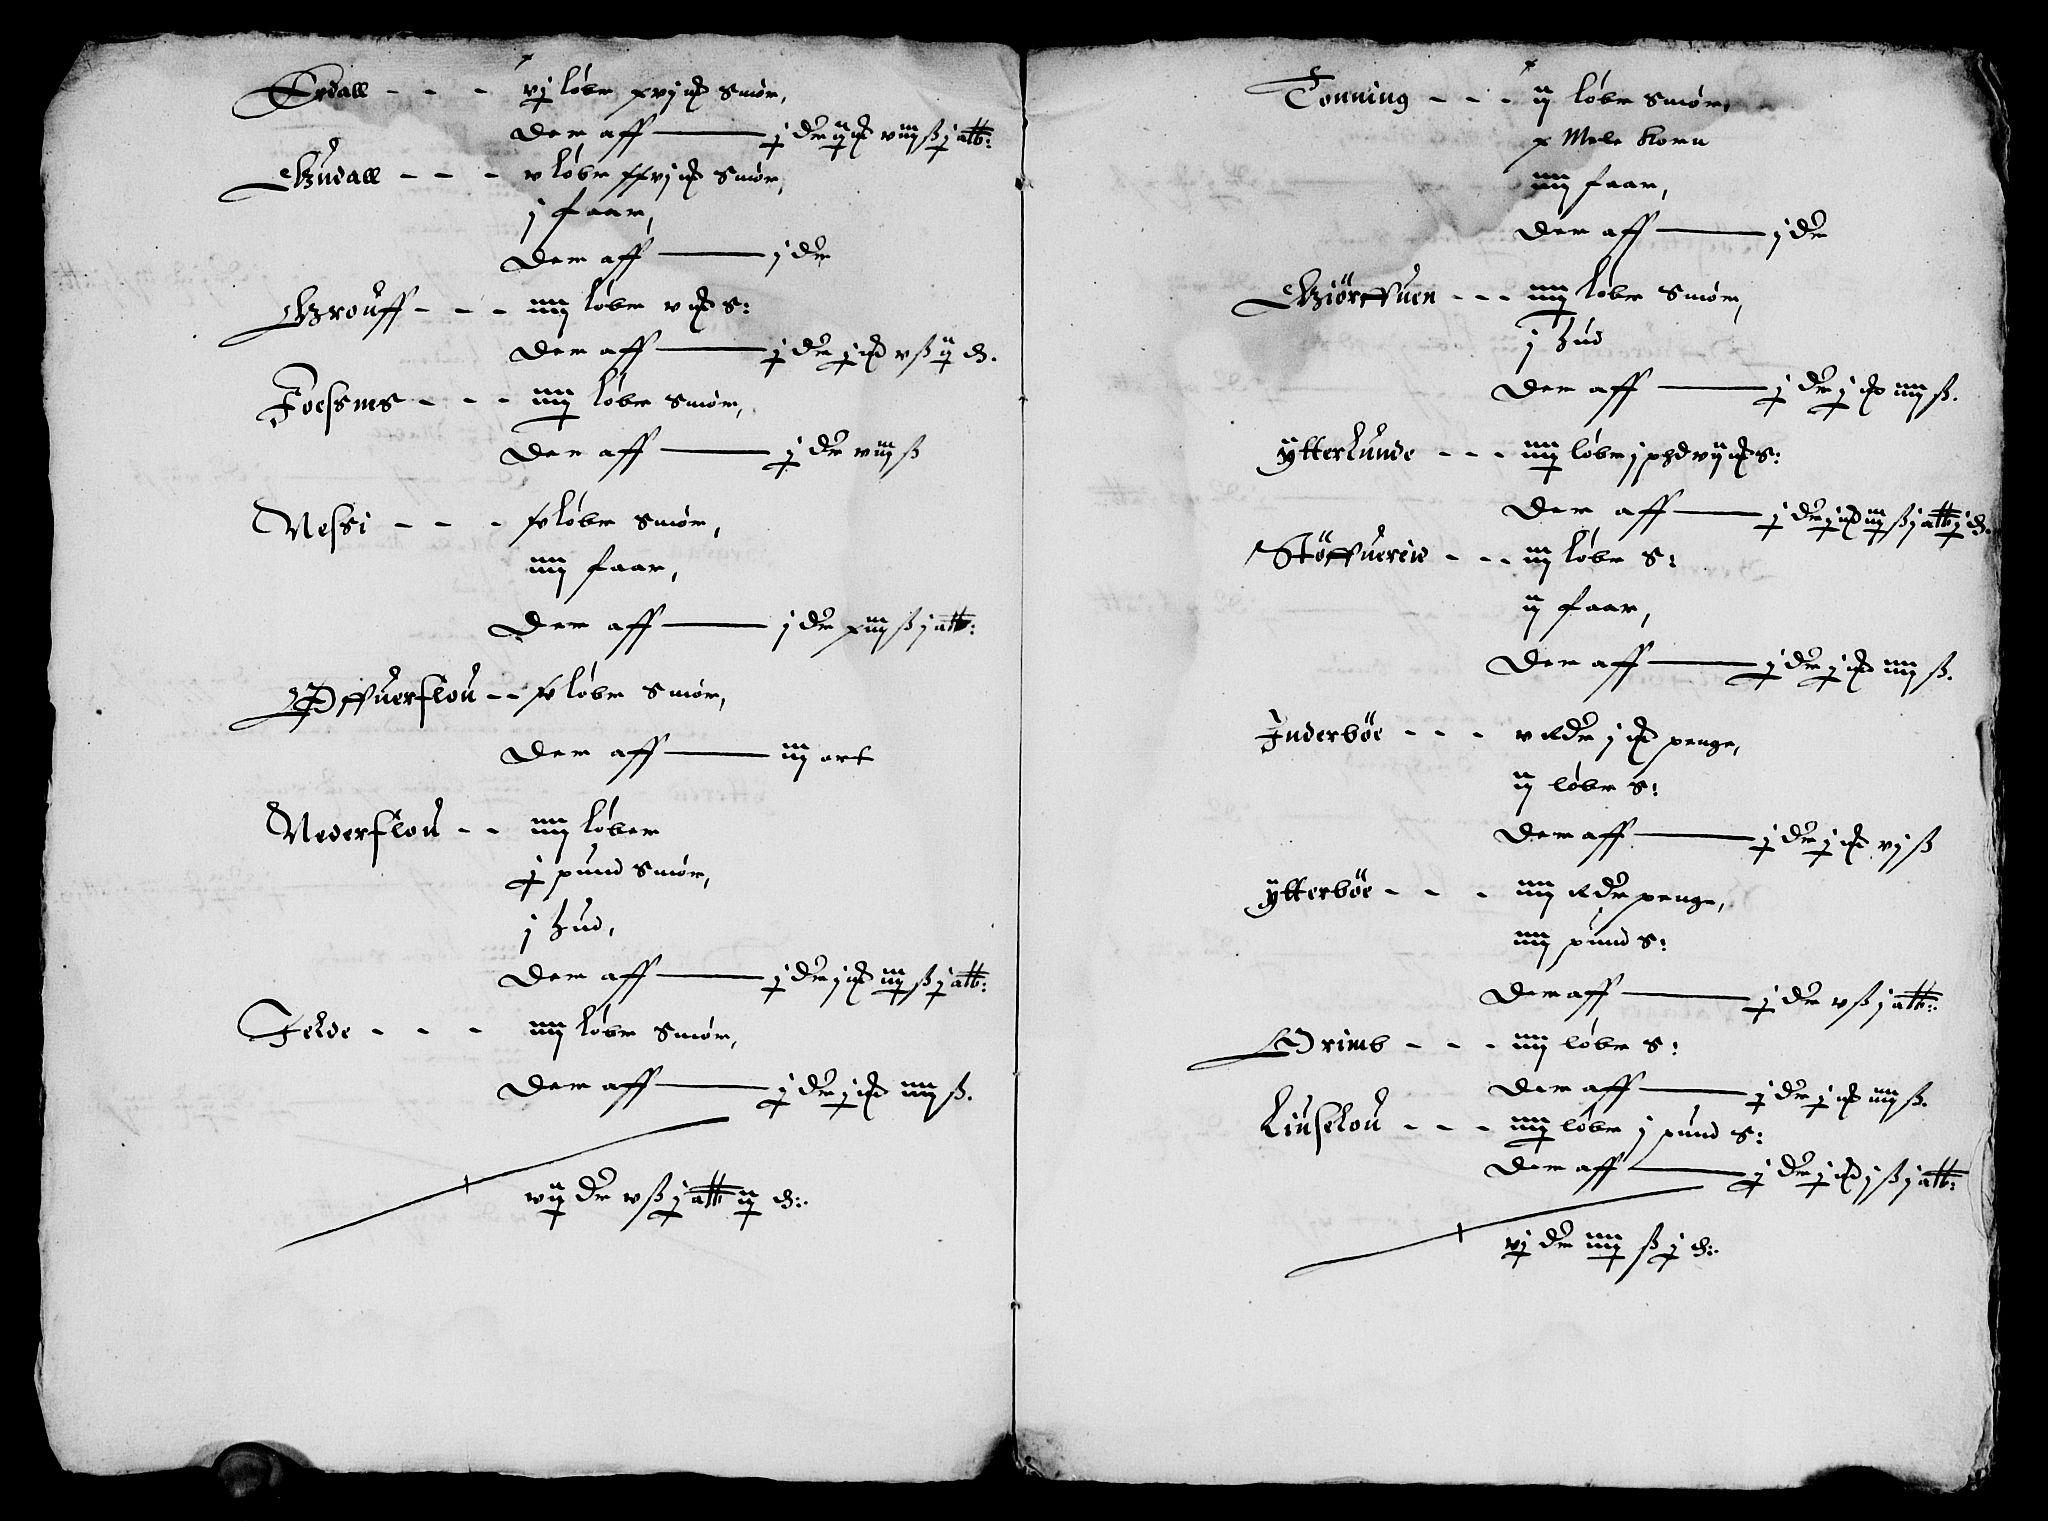 Erdall - - - vj løber xvj mk smør,
Der aff — j dr ij mk viij ß j alb:
Gudall - - - v løber xxvj mk smør,
j faar,
Der aff — j dr
Grouff - - - iiij løber v mk s:
Der aff — j dr j mk v ß ij d.
Foessnes - - - iiij løber smør,
Der aff — j dr viij ß
Nessi - - - xv løber smør,
iiij faar,
Der aff — j dr xiij ß j alb:
Øffuerflou - - xv løber smør,
Der aff — iij ort
Nederflou - - iiij løber
j pund smør,
j hud,
Der aff — j dr j mk iij ß j alb:
Felde - - - iiij løber smør,
Der aff — j dr j mk iiij ß.
vij dr v ß j alb ij d:
Tonning - - - ij løber smør,
x Mele korn
iiij faar,
Der aff — j dr
Giörffuen - - - iiij løber smør,
j hud
Der aff — j dr j mk iiij ß.
ÿtterlunde - - - iiij løber j pd vij mk s:
Der aff — j dr j mk iij ß j alb j d.
Stöffuerin - - - iij løber s:
ij faar,
Der aff — j dr j mk iiij ß.
Inderböe - - - v Rdr j mk penge,
ij løber s:
Der aff — j dr j mk vj ß
ÿtterböe - - - iiij Rdr penge,
iiij pund s:
Der aff — j dr v ß j alb:
Grimb - - - iiij løber s:
Der aff — j dr j mk iiij ß.
Liuselou - - - iiij løber j pund s:
Der aff — j dr j mk j ß j alb:
vj dr iiij ß j d: